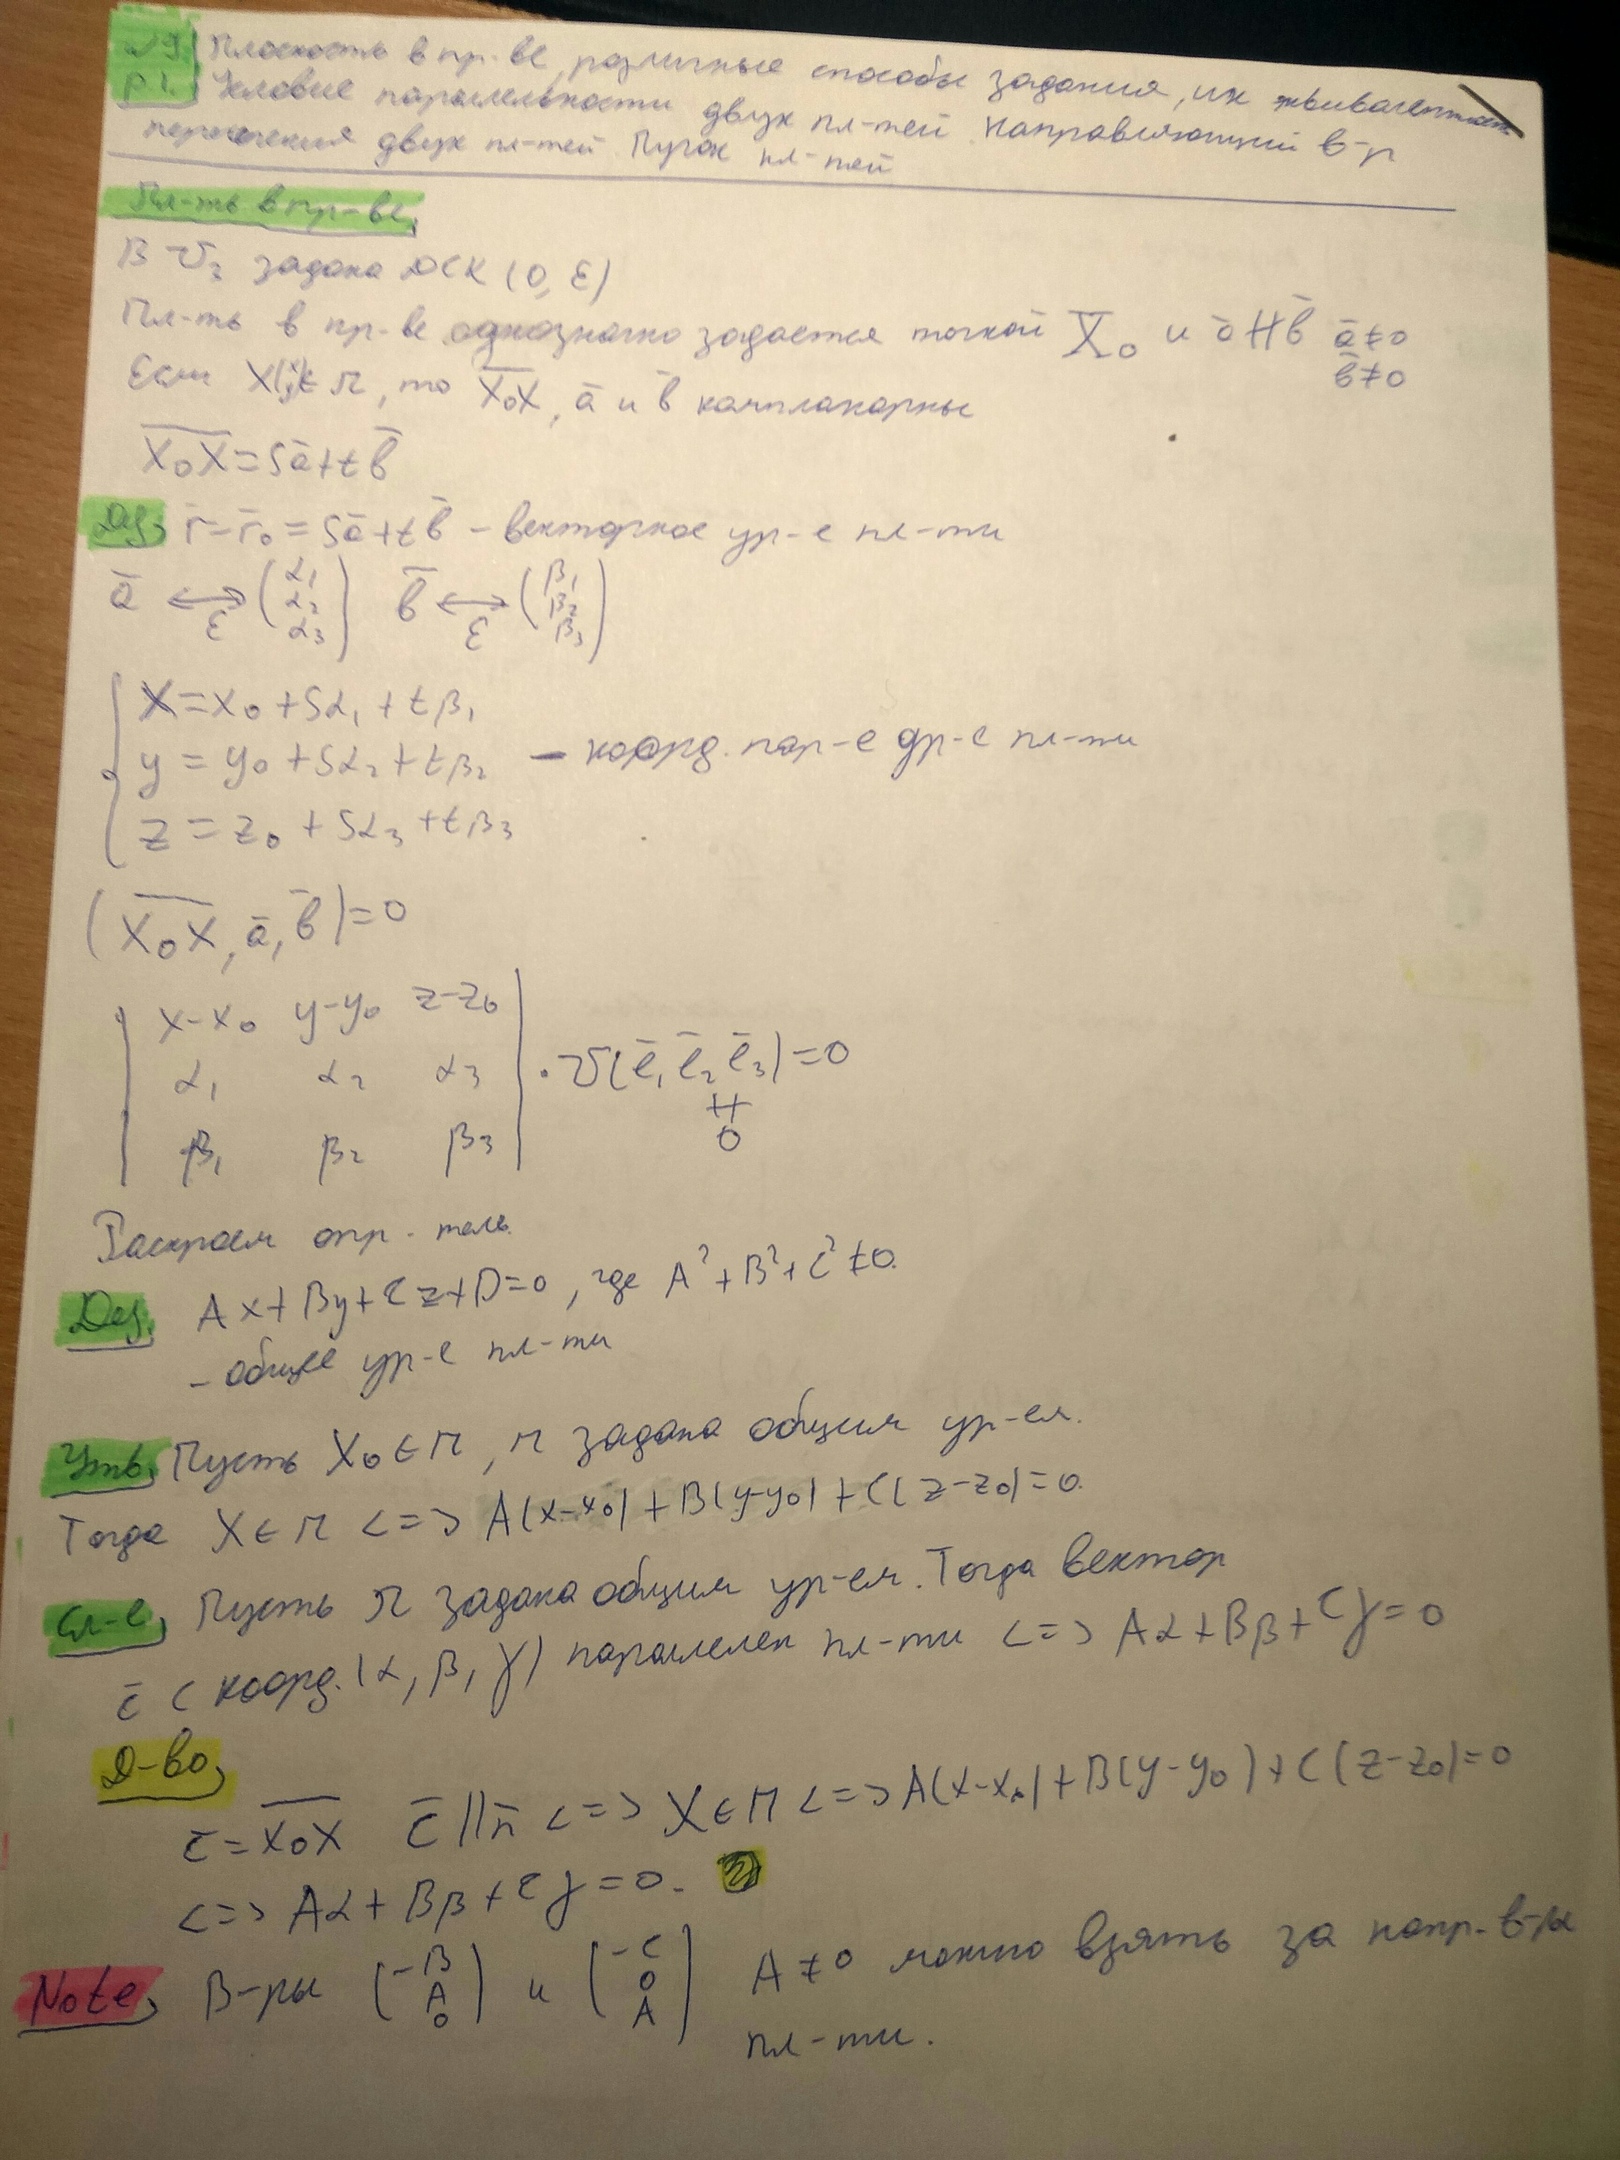 №9. Плоскость в пр-ве, различные способы задания, их эквивалентность
p 1. Условие параллельности двух пл-тей. Направляющий в-р
пересечения двух пл-тей. Пучок пл-тей
Пл-ть в пр-ве.
В V₃ задана ДСК (O, ε)
Пл-ть в пр-ве однозначно задается точкой X₀ и ā ∦ b̄ ā≠0
b̄≠0
Если X ∈ π, то X̅₀X̅, ā и b̄ компланарны
X̅₀X̅ = sā + tb̄
Def. r̄ - r̄₀ = sā + tb̄ - векторное ур-е пл-ти
ā ⟷ε (α₁ α₂ α₃) b̄ ⟷ε (β₁ β₂ β₃)
x = x₀ + sα₁ + tβ₁
y = y₀ + sα₂ + tβ₂ - коорд. пар-е ур-е пл-ти
z = z₀ + sα₃ + tβ₃
(X̅₀X̅, ā, b̄) = 0
| x-x₀ y-y₀ z-z₀ |
| α₁ α₂ α₃ | · V(ē₁ ē₂ ē₃) = 0
≠
0
| β₁ β₂ β₃ |
Раскроем опр-тель.
Def. Ax + By + Cz + D = 0, где A² + B² + C² ≠ 0.
- общее ур-е пл-ти
Утв. Пусть X₀ ∈ π, π задана общим ур-ем.
Тогда X ∈ π <=> A(x-x₀) + B(y-y₀) + C(z-z₀) = 0.
Сл-е, Пусть π задана общим ур-ем. Тогда вектор
c̄ с коорд. (α, β, γ) параллелен пл-ти <=> Aα + Bβ + Cγ = 0
Д-во,
c̄ = X̅₀X̅ c̄ || π <=> X ∈ π <=> A(x-x₀) + B(y-y₀) + C(z-z₀) = 0
<=> Aα + Bβ + Cγ = 0.
Note, В-ры (-B A 0) и (-C 0 A) A ≠ 0 можно взять за напр. в-ры
пл-ти.